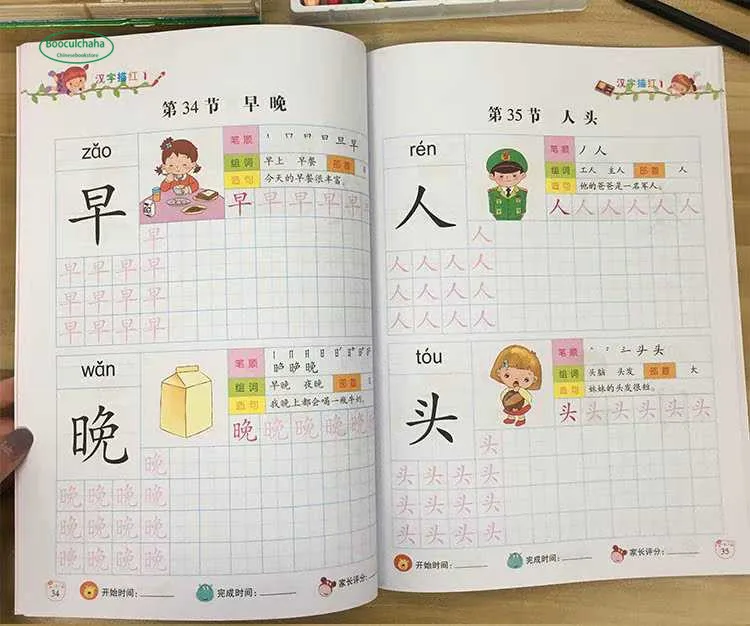 Booculchaha
Chinesebookstore
汉字描红1
第34节 早晚
zǎo
早
笔顺 丨 冂 日 日 旦 早
组词 早上 早餐 部首
造句 今天的早餐很丰富。
早 早 早 早 早
早
早 早 早 早
早 早 早 早
早 早 早 早
wǎn
晚
笔顺
组词 早晚 夜晚 部首
造句 我晚上都会喝一瓶牛奶。
晚 晚 晚 晚 晚
晚
晚 晚 晚 晚
晚 晚 晚 晚
晚 晚 晚 晚
34 开始时间: 完成时间: 家长评分:
汉字描红1
第35节 人头
rén
人
笔顺 丿 人
组词 工人 主人 部首 人
造句 他的爸爸是一名军人。
人 人 人 人 人 人
人
人 人 人 人
人 人 人 人
人 人 人 人
tóu
头
笔顺 头 头
组词 头脑 头发 部首 大
造句 妹妹的头发很短。
头 头 头 头 头 头
头
头 头 头 头
头 头 头 头
头 头 头 头
开始时间: 完成时间: 家长评分: 35